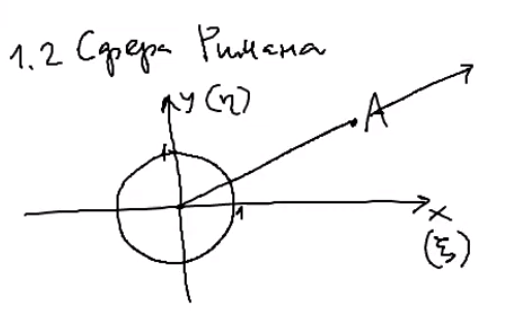 1.2 Сфера Римана
y (η)
A
1
1
x
(ξ)